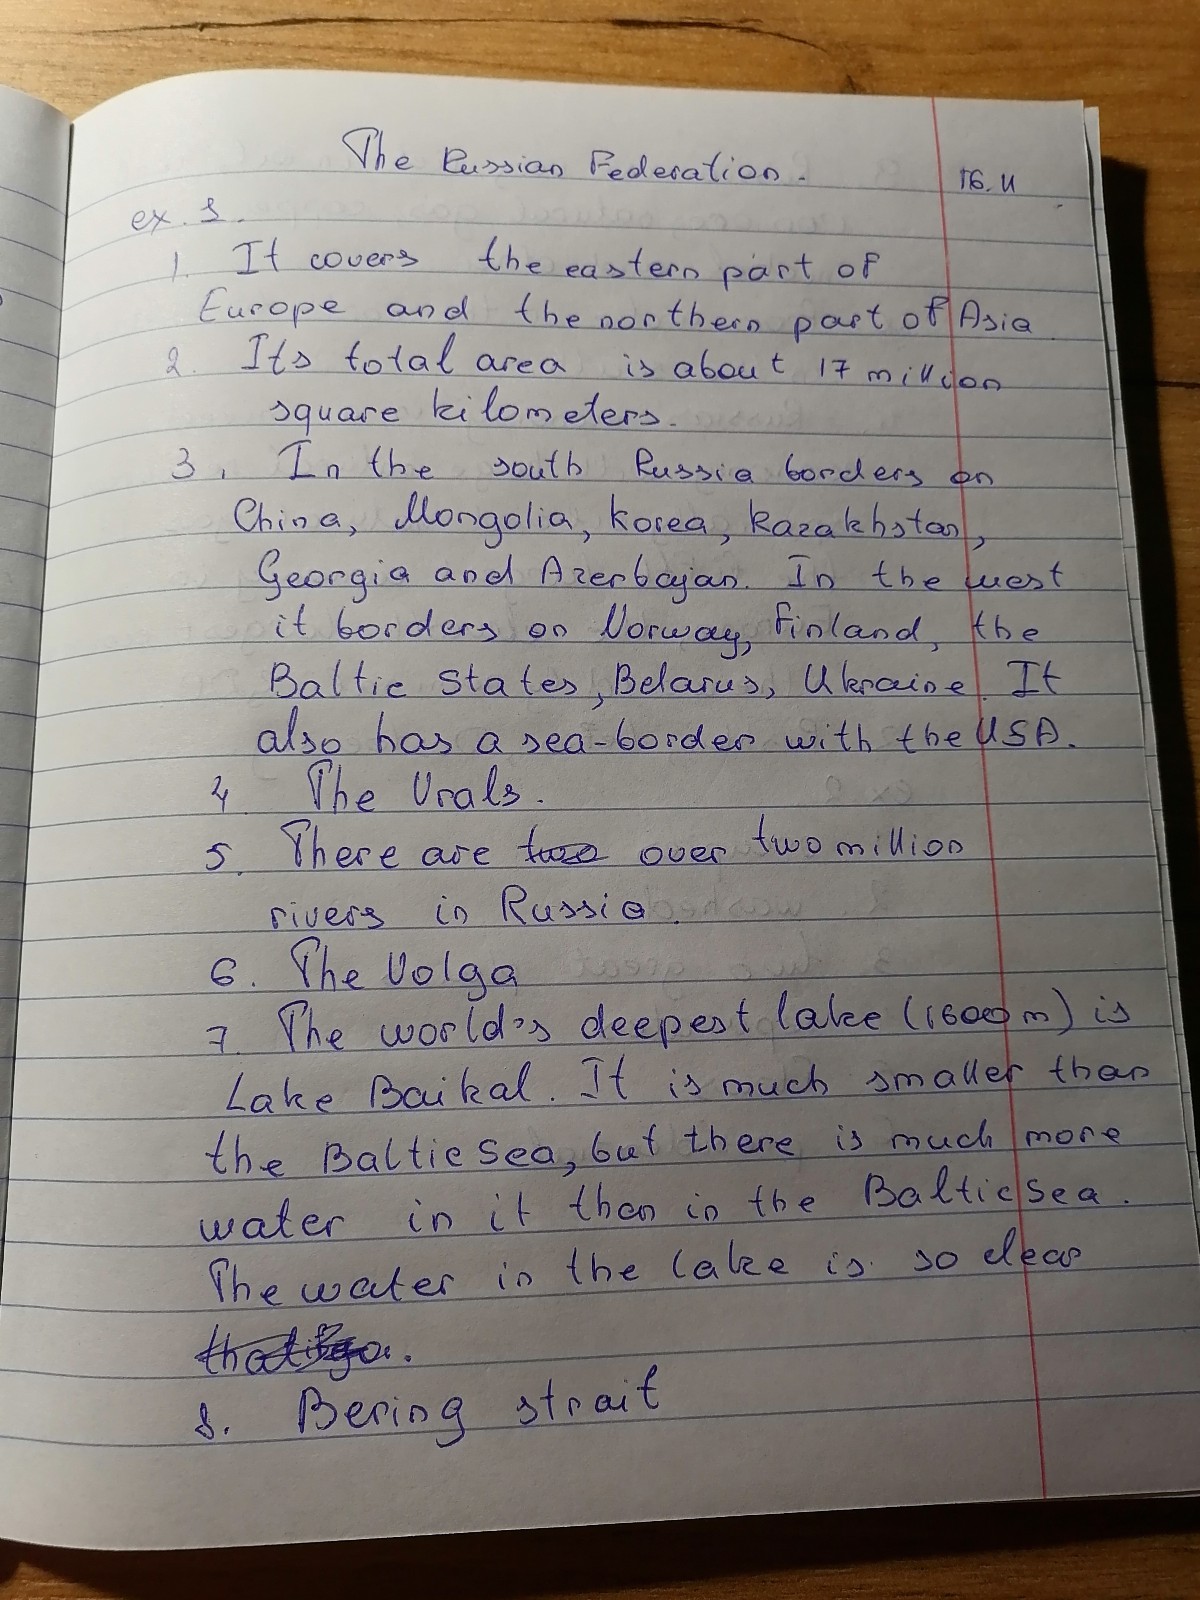 The Russian Federation.
16.11
ex. 1.
1. It covers the eastern part of
Europe and the northern part of Asia
2. Its total area is about 17 million
square kilometers.
3. In the south Russia borders on
China, Mongolia, Korea, Kazakhstan,
Georgia and Azerbajan. In the west
it borders on Norway, Finland, the
Baltic States, Belarus, Ukraine. It
also has a sea-border with the USA.
4. The Urals.
5. There are two over two million
rivers in Russia.
6. The Volga
7. The world's deepest lake (1600 m) is
Lake Baikal. It is much smaller than
the Baltic Sea, but there is much more
water in it than in the Baltic Sea.
The water in the lake is so clear
8. Bering strait